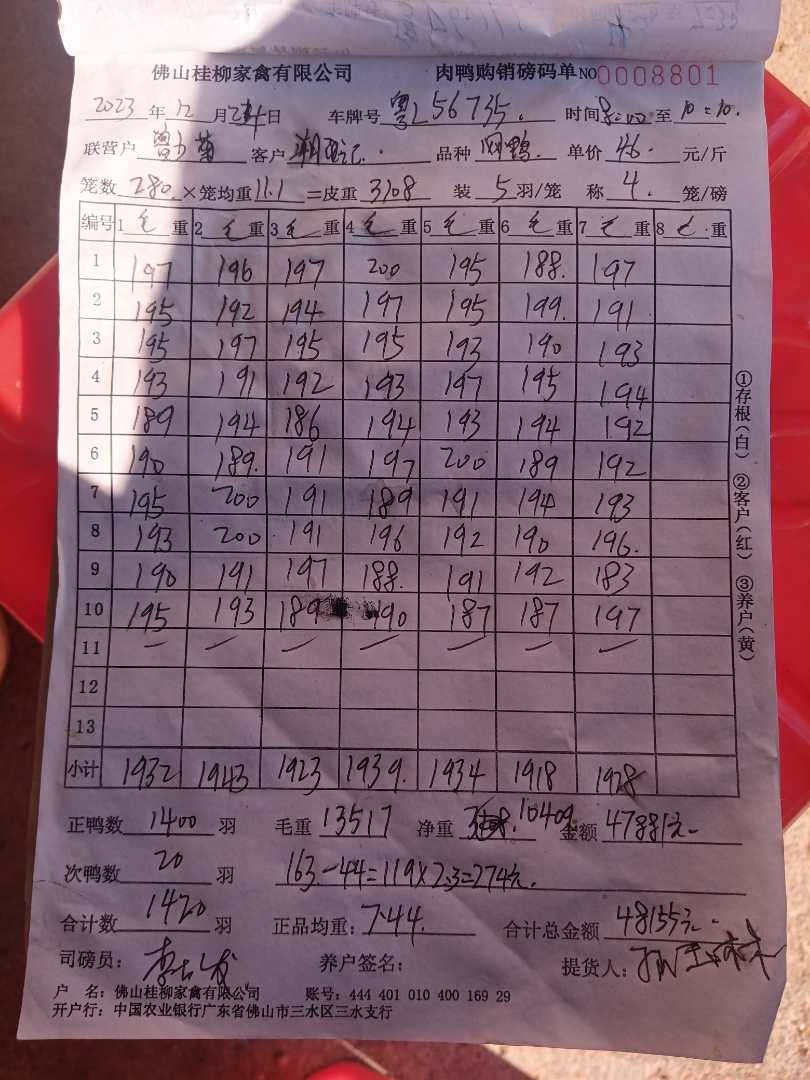 佛山桂柳家禽有限公司 肉鸭购销磅码单 NO0008801
2023年12月24日 车牌号 粤L56735. 时间8:00至10:10.
联营户 客户 品种 单价 4.6. 元/斤
笼数 280 ×笼均重 11.1 =皮重 3108 装 5 羽/笼 称 4. 笼/磅
编号 1 毛 重 2 毛 重 3 毛 重 4 毛 重 5 毛 重 6 毛 重 7 毛 重 8 毛 重
1 197 196 197 200 195 188. 197
2 195 192 194 197 195 199. 191
3 195 197 195 195 193 190 193
4 193 191 192 193 197 195 194
5 189 194 186 194 193 194 192
6 190 189. 191 197 200 189 192
7 195 200 191 189 191 194 193
8 193 200 191 196 192 190 196.
9 190 191 197 188. 191 192 183
10 195 193 189 190 187 187 197
11 — — — — — — —
12
13
小计 1932 1943 1923 1939. 1934 1918 1928
正鸭数 1400 羽 毛重 13517 净重 10409 金额 47881元-
次鸭数 20 羽 163.-44=119×2.3=274元.
合计数 1420 羽 正品均重: 7.44. 合计总金额 48155元.
司磅员: 养户签名: 提货人:
户 名: 佛山桂柳家禽有限公司 账号: 444 401 010 400 169 29
开户行: 中国农业银行广东省佛山市三水区三水支行
①存根(白) ②客户(红) ③养户(黄)